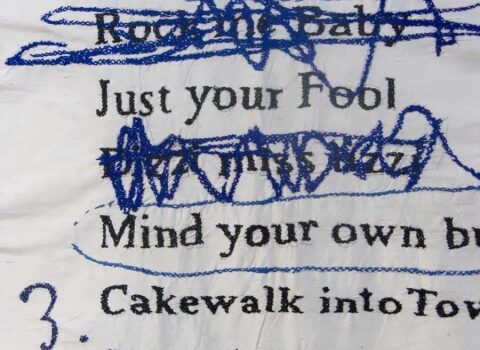 Rock me Baby
Just your Fool
Dizzi miss lizzi
Mind your own bu
3. Cakewalk into Tow